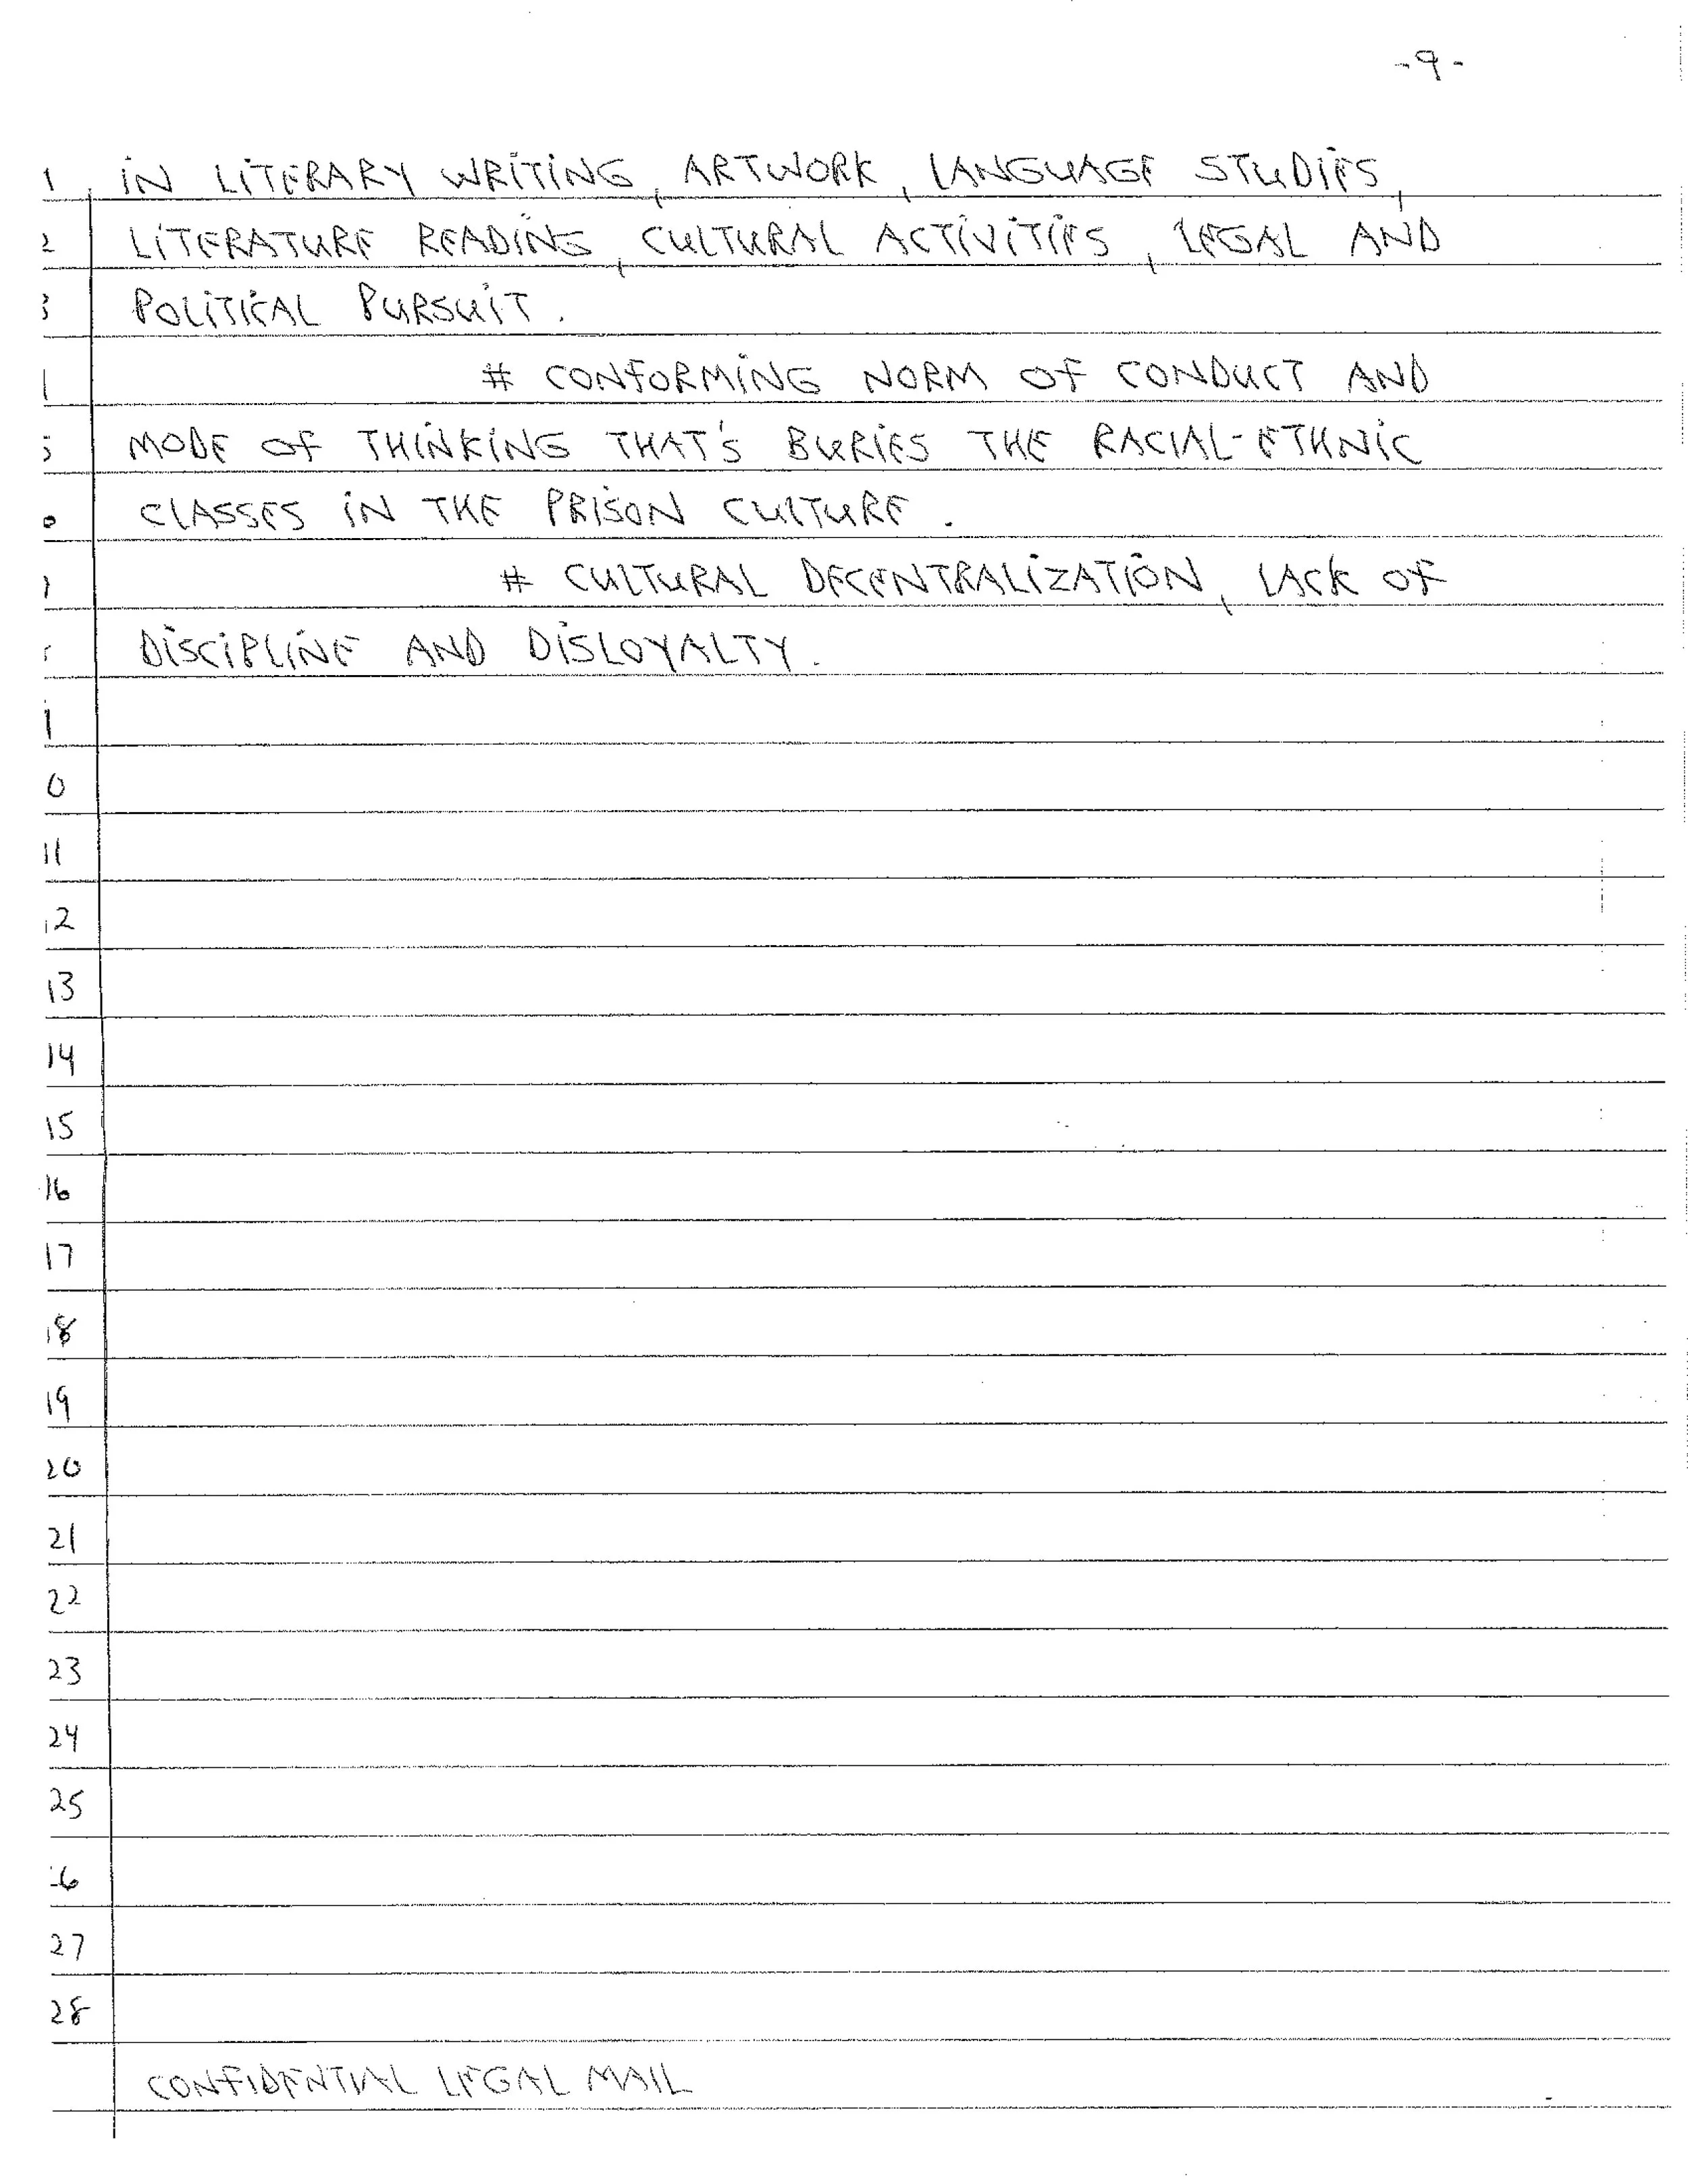 -9-
1 IN LITERARY WRITING, ARTWORK, LANGUAGE STUDIES,
2 LITERATURE READING, CULTURAL ACTIVITIES, LEGAL AND
3 POLITICAL PURSUIT.
# CONFORMING NORM OF CONDUCT AND
5 MODE OF THINKING THAT'S BURIES THE RACIAL-ETHNIC
CLASSES IN THE PRISON CULTURE.
# CULTURAL DECENTRALIZATION, LACK OF
DISCIPLINE AND DISLOYALTY.
0
11
12
13
14
15
16
17
18
19
20
21
22
23
24
25
26
27
28
CONFIDENTIAL LEGAL MAIL